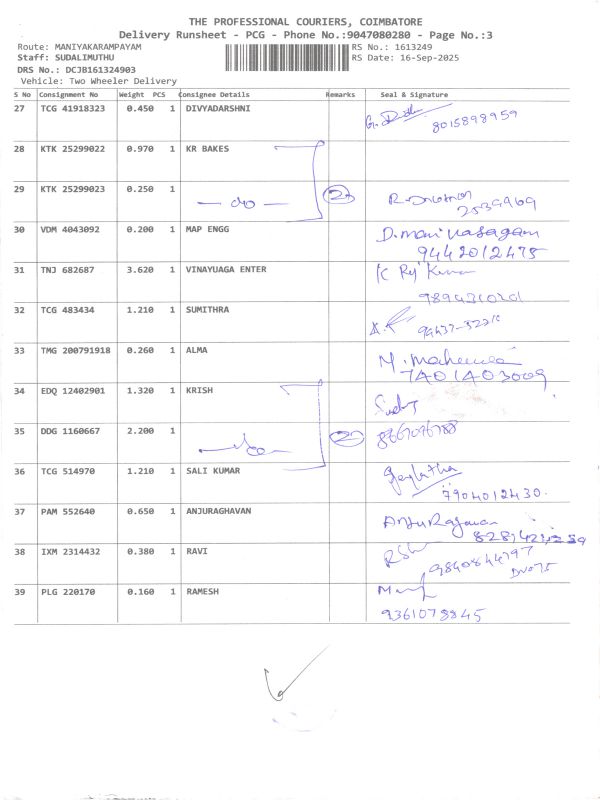 THE PROFESSIONAL COURIERS, COIMBATORE
Delivery Runsheet - PCG - Phone No.:9047080280 - Page No.:3
Route: MANIYAKARAMPAYAM RS No.: 1613249
Staff: SUDALIMUTHU RS Date: 16-Sep-2025
DRS No.: DCJB161324903
Vehicle: Two Wheeler Delivery
S No Consignment No Weight PCS Consignee Details Remarks Seal & Signature
27 TCG 41918323 0.450 1 DIVYADARSHNI
8015898959
28 KTK 25299022 0.970 1 KR BAKES
29 KTK 25299023 0.250 1 - do - 2
2539969
30 VDM 4043092 0.200 1 MAP ENGG D.manivasagam
9442012475
31 TNJ 682687 3.620 1 VINAYUAGA ENTER
32 TCG 483434 1.210 1 SUMITHRA
33 TMG 200791918 0.260 1 ALMA
7401403009
34 EDQ 12402901 1.320 1 KRISH
35 DDG 1160667 2.200 1 2
36 TCG 514970 1.210 1 SALI KUMAR
7904012430.
37 PAM 552640 0.650 1 ANJURAGHAVAN
38 IXM 2314432 0.380 1 RAVI
9840844797
39 PLG 220170 0.160 1 RAMESH
9361078845